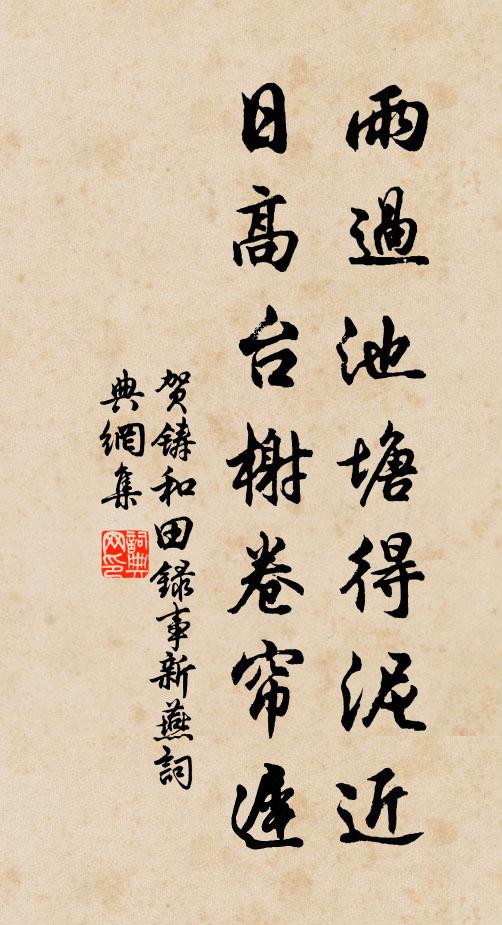 雨過池塘得泥近
日高台榭卷帘遲
贺鑄和田録事新燕詞
典網集
詞典
网印